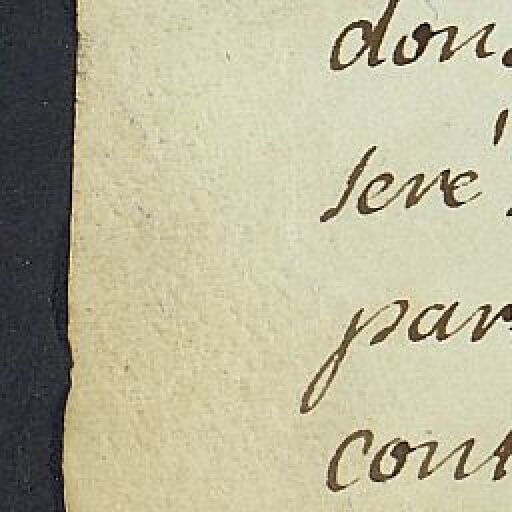 don
seré
par
cont